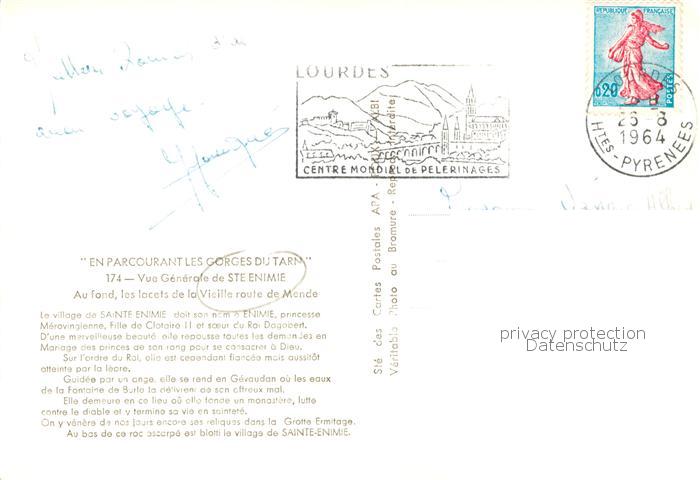 REPUBLIQUE FRANÇAISE
0,20
POSTES
LOURDES
CENTRE MONDIAL DE PELERINAGES
26-8
1964
Htes-PYRENEES
voyage.
Sté des Cartes Postales APA - ALBI
Véritable Photo au Bromure - Reproduction Interdite
" EN PARCOURANT LES GORGES DU TARN "
174 — Vue Générale de STE ENIMIE
Au fond, les lacets de la Vieille route de Mende
Le village de SAINTE ENIMIE doit son nom à ENIMIE, princesse
Mérovingienne, Fille de Clotaire II et sœur du Roi Dagobert.
D'une merveilleuse beauté elle repousse toutes les demandes en
Mariage des princes de son rang pour se consacrer à Dieu.
Sur l'ordre du Roi, elle est cependant fiancée mais aussitôt
atteinte par la lèpre.
Guidée par un ange, elle se rend en Gévaudan où les eaux
de la Fontaine de Burle la délivrent de son affreux mal.
Elle demeure en ce lieu où elle fonde un monastère, lutte
contre le diable et y termine sa vie en sainteté.
On y vénère de nos jours encore ses reliques dans la Grotte Ermitage.
Au bas de ce roc escarpé est blotti le village de SAINTE-ENIMIE.
privacy protection
Datenschutz